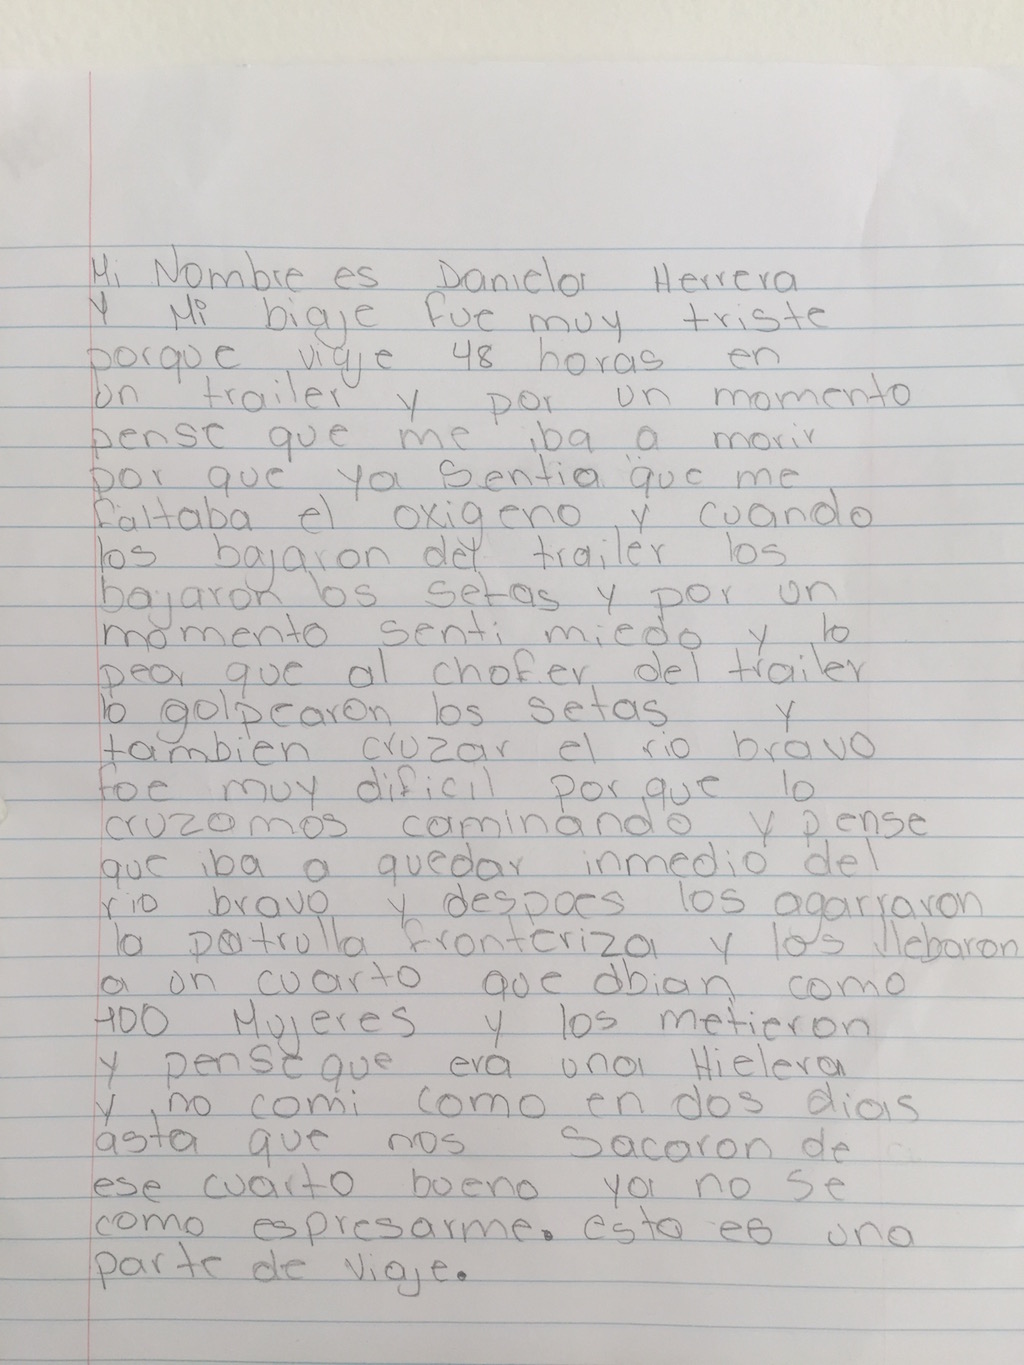 Mi Nombre es Daniela Herrera
Y Mi biaje fue muy triste
porque viaje 48 horas en
un trailer y por un momento
pense que me iba a morir
por que ya Sentia que me
faltaba el oxigeno y cuando
los bajaron del trailer los
bajaron los setas y por un
momento senti miedo y lo
peor que al chofer del trailer
lo golpearon los setas y
tambien cruzar el rio bravo
fue muy dificil por que lo
cruzamos caminando y pense
que iba a quedar inmedio del
rio bravo y despues los agarraron
la patrulla fronteriza y los llebaron
a un cuarto que abian como
400 Mujeres y los metieron
y pense que era una Hielera
y no comi como en dos dias
asta que nos Sacaron de
ese cuarto bueno ya no se
como espresarme. esta es una
parte de viaje.